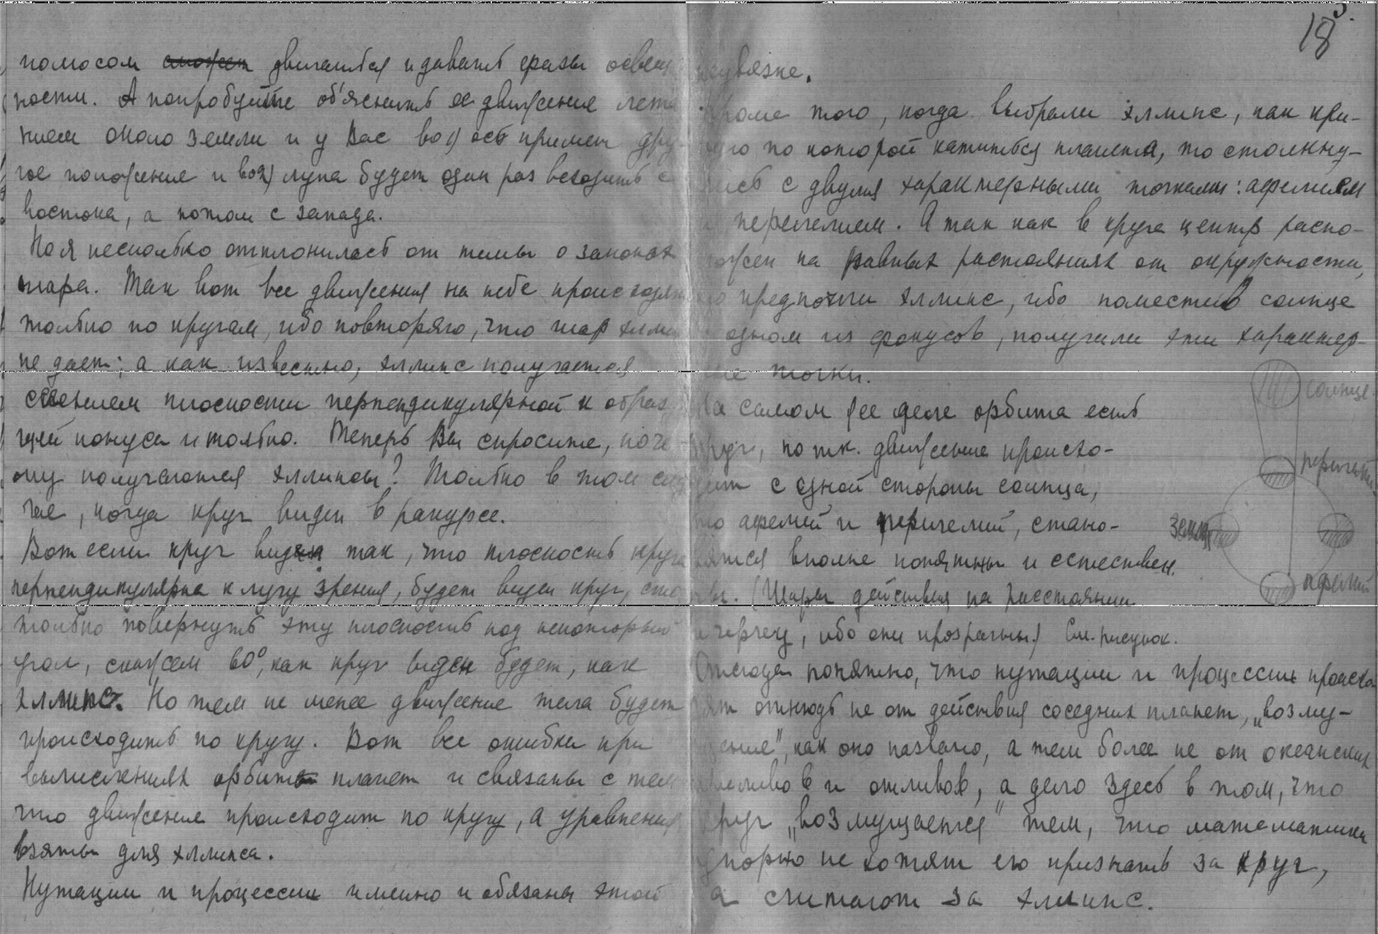 полюсом двигаться и давать фразы освещ
ности. А попробуйте об'яснить ее движение лета
нием около земли и у Вас воя) ось примет дру-
гое положение и воя) луна будет один раз всходить с
востока, а потом с запада.
Но я несколько отклонилась от темы о законах
шара. Так вот все движения на небе происходят
только по кругам, ибо повторяю, что шар эллип
не дает; а как известно, эллипс получается
сечением плоскости перпендикулярной к образ
щей конуса и только. Теперь Вы спросите, поче-
му получаются эллипсы? Только в том слу
чае, когда круг виден в ракурсе.
Вот если круг виден так, что плоскость круга
перпендикулярна к лучу зрения, будет виден круг, сто
только повернуть эту плоскость под некоторый
угол, скажем 60°, как круг виден будет, как
эллипс. Но тем не менее движение тела будет
происходить по кругу. Вот все ошибки при
вычислениях орбит планет и связаны с тем
что движение происходит по кругу, а уравнения
взяты для эллипса.
Нутации и процессии именно и обязаны этой
18
невязке.
Кроме того, когда выбрали эллипс, как кри-
вую по которой катиться планета, то столкну-
лись с двумя характерными точками: афелием
и перигелием. А так как в круга центр распо-
ложен на равных растояниях от окружности,
то предпочли эллипс, ибо поместив солнце
в одном из фокусов, получили эти характер-
ные точки.
На самом же деле орбита есть
круг, но т.к. движение происхо-
дит с одной стороны солнца,
то афелий и перигелий, стано-
вятся вполне понятны и естествен
ны. (Шары действия на расстоянии
и черчу, ибо они прозрачны) См. рисунок.
Отсюда понятно, что нутации и процессии происхо
дят отнюдь не от действия соседних планет, „возму-
щение", как оно названо, а тем более не от океанских
приливов и отливов, а дело здесь в том, что
круг „возмущается" тем, что математики
упорно не хотят его признать за круг,
а считают за эллипс.
солнце
перигелий
земля
афелий